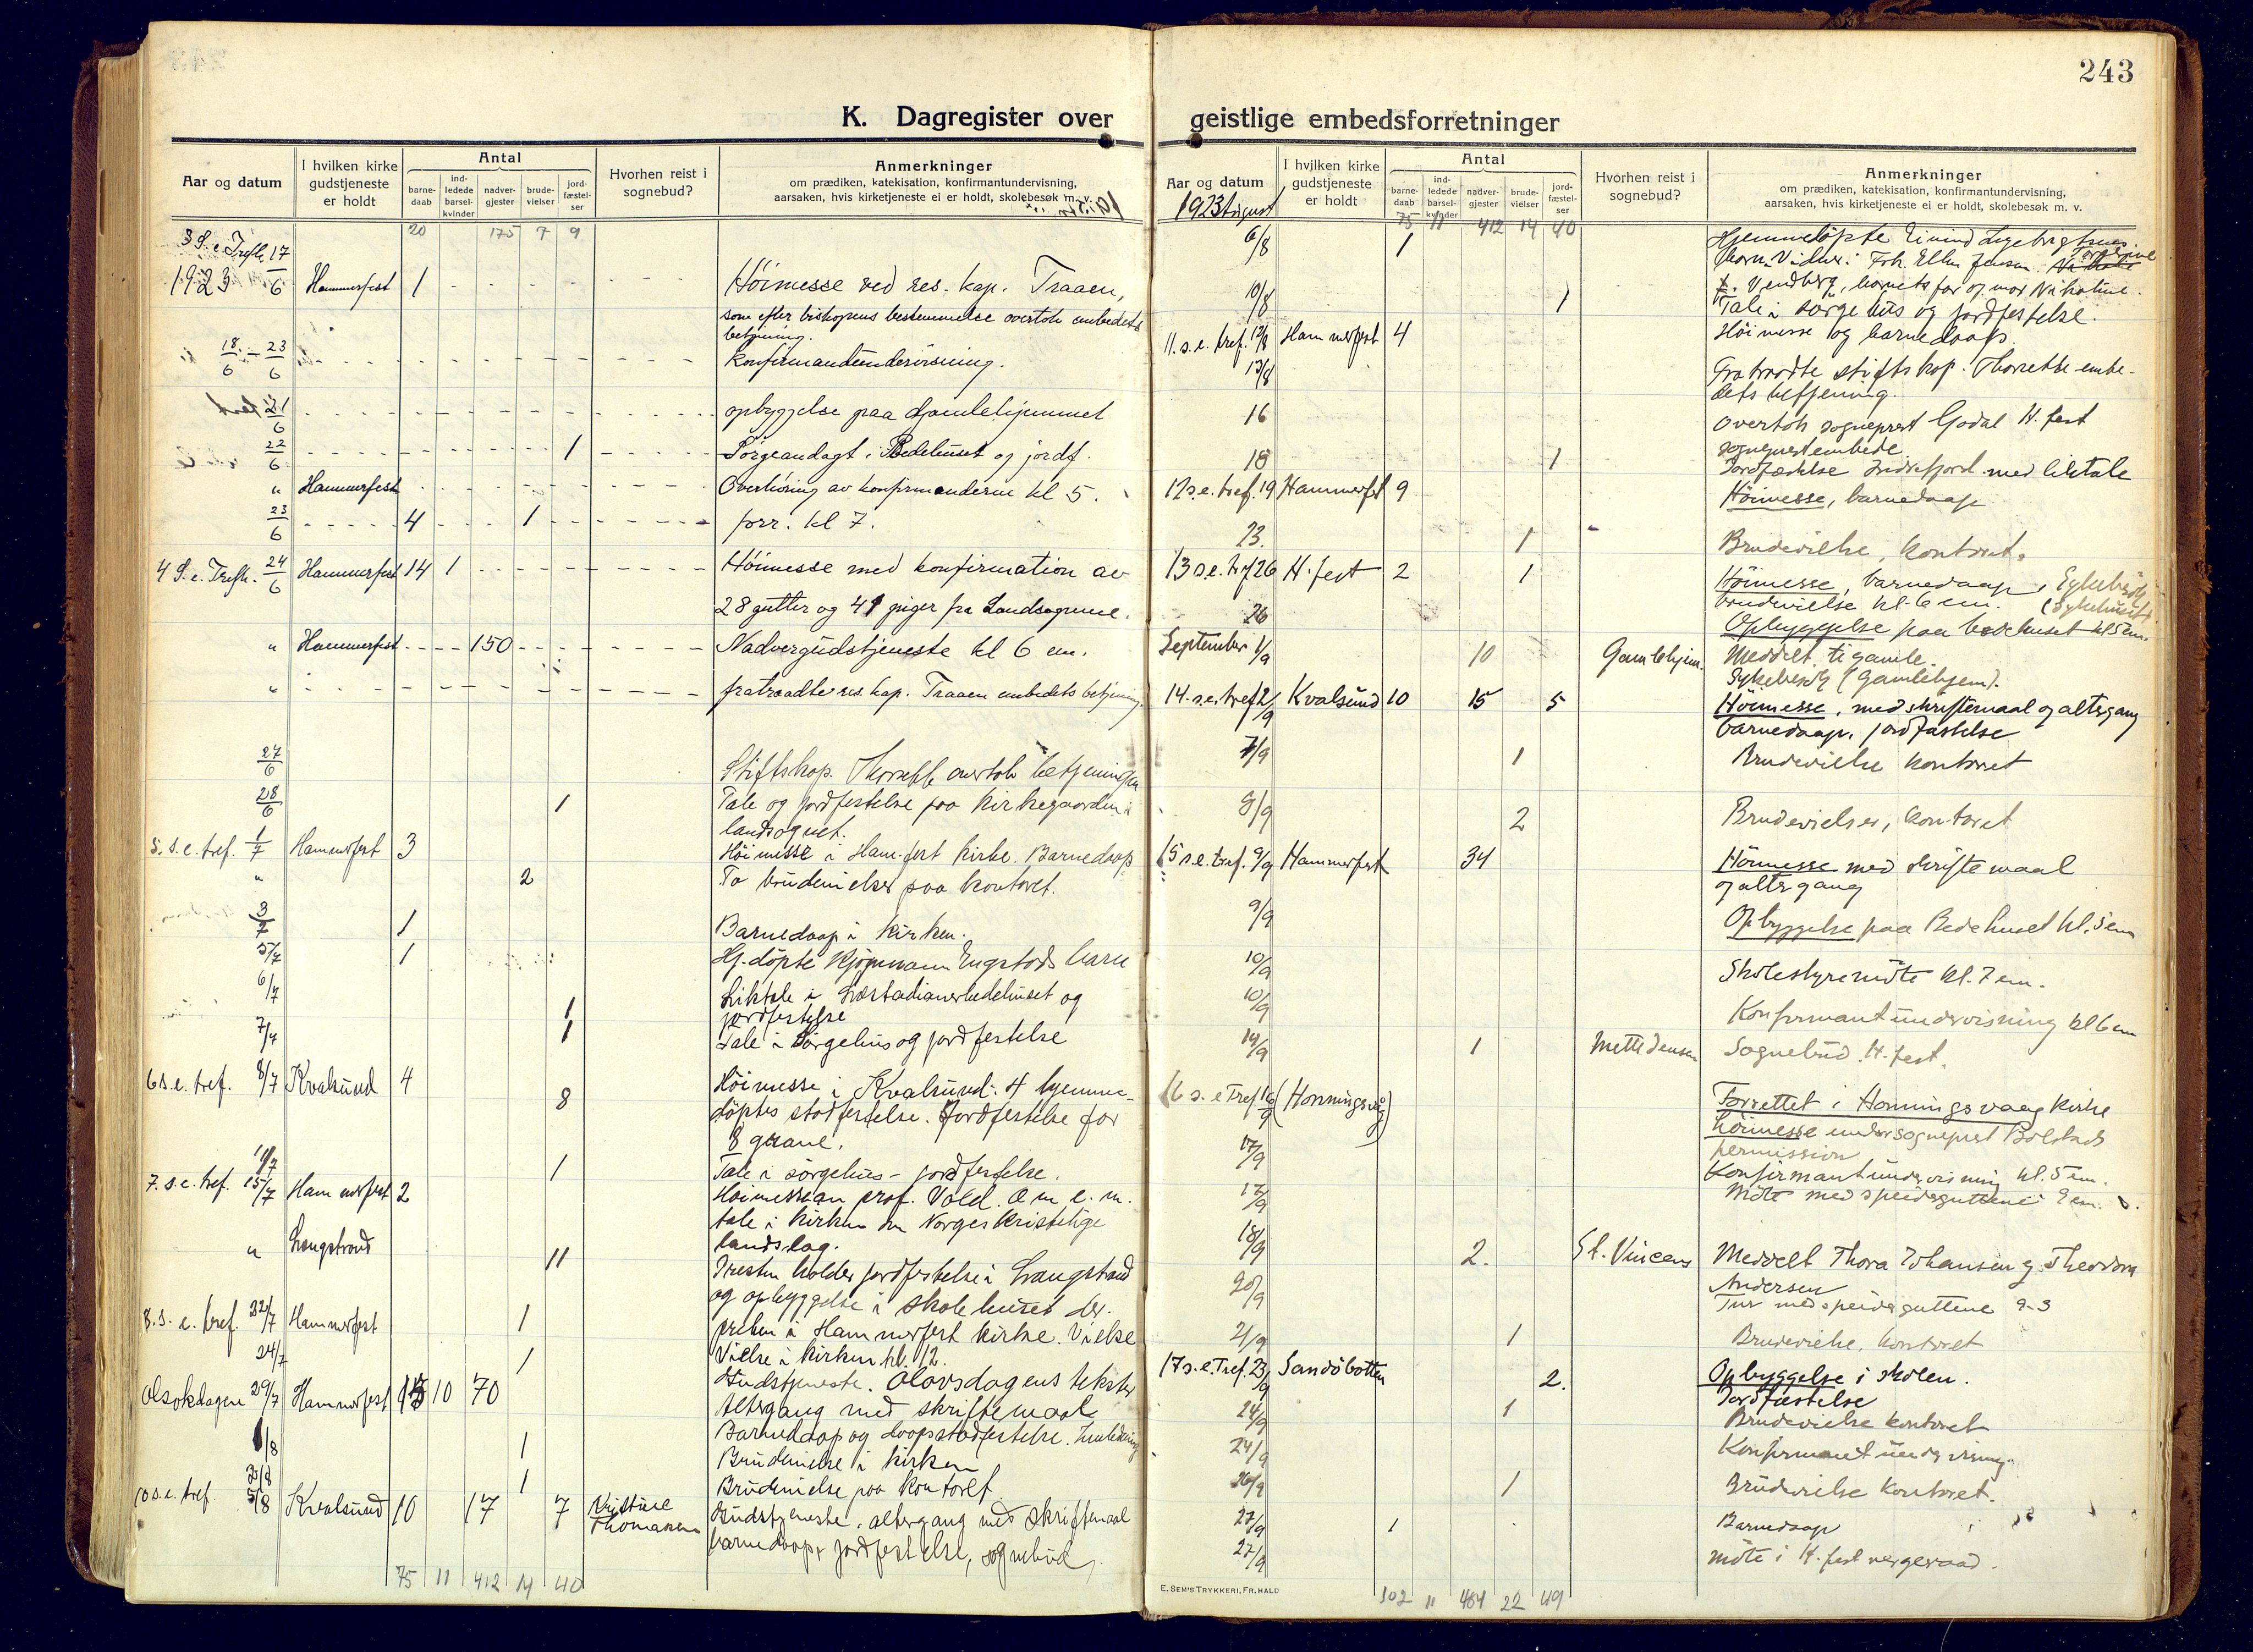 243
K. Dagregister over
geistlige embedsforretninger
Aar og datum
I hvilken kirke gudstjeneste er holdt
Antal
barne-daab
ind-ledede barsel-kvinder
nadver-gjester
brude-vielser
jord-fæstel-ser
Hvorhen reist i sognebud?
Anmerkninger
om prædiken, katekisation, konfirmantundervisning,
aarsaken, hvis kirketjeneste ei er holdt, skolebesøk m. v.
20 175 7 9
3 S. e. Trefh. 17/6
1923 Hammerfest 1 Höimesse ved res. kap. Traaen,
som efter biskopens bestemmelse overtok embedets
betjening.
18/6 - 23/6 Konfirmandundervisning.
21/6 opbyggelse paa Gamlehjemmet
22/6 1 Sørgeandagt i Bedehuset og jordf.
" Hammerfest Overhøring av konfirmanderne kl 5.
23/6 4 1 forr. kl 7.
4 S. e. Trefh. 24/6 Hammerfest 14 1 Höimesse med konfirmation av
28 gutter og 41 piger fra Landsognene.
" Hammerfest 150 Nadvergudstjeneste kl 6 em.
" fratraadte res. kap. Traaen embedets betjening.
27/6 Stiftskap. Thorsett overtok betjeningen
28/6 1 Tale og jordfestelse paa kirkegaarden i
landsognet.
5. s. e. tref. 1/7 Hammerfest 3 Höimesse i Ham-fest kirke. Barnedaap
" 2 To brudevielser paa kontoret.
3/7 1 Barnedaap i kirken.
5/7 1 Hj.döpte kjöpmann Engstads barn
6/7 1 Liktale i Læstadianerbedehuset og
jordfestelse
7/7 1 Tale i sörgehus og jordfestelse
6 s. e. tref. 8/7 Kvalsund 4 8 Höimesse i Kvalsund. 4 hjemme-
döptes stadfestelse. Jordfestelse for
8 grave.
11/7 1 Tale i sörgehus - jordfestelse.
7. s. e. tref. 15/7 Hammerfest 2 Höimesse av prof. Vold. Om e. m.
tale i kirken om Norges Kristelige
landslag.
" Langstrand 11 Presten holder jordfestelse i Langstrand
og opbyggelse i skolehuset der.
8. s. e. tref. 22/7 Hammerfest 1 preken i Hammerfest kirke. Vielse
24/7 1 Vielse i kirken kl. 12.
Olsokdagen 29/7 Hammerfest 15 10 70 Gudstjeneste. Olavsdagens tekster
Altergang med skriftemaal
Barnedaap og daapsstadfestelse. Innledning
1/8 1 Brudevielse i kirken
3/8 1 Brudevielse paa kontoret
10 s. e. tref 5/8 Kvalsund 10 17 7 Kristine Thomasen Gudstjeneste. altergang med skriftemaal
barnedaap, jordfestelse, sognebud,
75 11 412 14 40
Aar og datum
1923 August
I hvilken kirke gudstjeneste er holdt
Antal
barne-daab
ind-ledede barsel-kvinder
nadver-gjester
brude-vielser
jord-fæstel-ser
Hvorhen reist i sognebud?
Anmerkninger
om prædiken, katekisation, konfirmantundervisning,
aarsaken, hvis kirketjeneste ei er holdt, skolebesøk m. v.
75 11 412 14 40
6/8 1 Hjemmedöpte Eivind
barn. Vidner: Frk. Ellen Jensen.
Vendberg, barnets far og mor Nikoline.
10/8 1 Tale i sörgehus og jordfestelse.
11. s. e. tref. 12/8 Hammerfest 4 Höimesse og barnedaap.
13/8 Fratraadte stiftskap. Thorsett embe-
dets betjening.
16 Overtok sogneprest Godal H.fest
sogneprestembede.
18 1 Jordfæstelse Indrefjord med liktale
12 s. e. tref. 19 Hammerfest 9 Höimesse, barnedaap
23. 1 Brudevielse, kontoret.
13 s. e. trf 26 H.fest 2 1 Höimesse, barnedaap, Sykebesök
brudevielse kl. 6 em. (Sykehuset)
26 Opbyggelse paa bedehuset kl 5 em.
September 1/9 10 Gamlehjem. Meddelt ti gamle.
Sykebesök (Gamlehjem).
14. s. e. tref 2/9 Kvalsund 10 15 5 Höimesse, med skriftemaal og altergang
barnedaap, jordfæstelse
7/9 1 Brudevielse kontoret
8/9 2 Brudevielser, kontoret
15 s. e. tref. 9/9 Hammerfest 34 Höimesse med skriftemaal
og altergang
9/9 Opbyggelse paa Bedehuset kl. 5 em
10/9 Skolestyremöte kl. 7 em.
10/9 Konfirmantundervisning kl 6 em
14/9 1 Mette Jensen Sognebud H.fest.
16 s. e Tref 16/9 (Honningsvåg) Forrettet i Honningsvaag kirke
höimesse under sogneprest Bolstads
permission
17/9 Konfirmantundervisning kl. 5 em.
17/9 Möte med speiderguttene 9 em.
18/9 2. St. Vincens Meddelt Thora Johansen og Theodora
Andersen
20/9 Tur med speiderguttene 9-3
21/9 1 Brudevielse, kontoret
17 s. e. Tref. 23/9 Sandöbotten 2. Opbyggelse i skolen.
Jordfæstelse
24/9 1 Brudevielse kontoret
24/9 Konfirmantundervisning.
26/9 1 Brudevielse kontoret.
27/9 1 Barnedaap
27/9 möte i H.fest vergeraad.
E. SEM'S TRYKKERI, FR.HALD
102 11 484 22 49